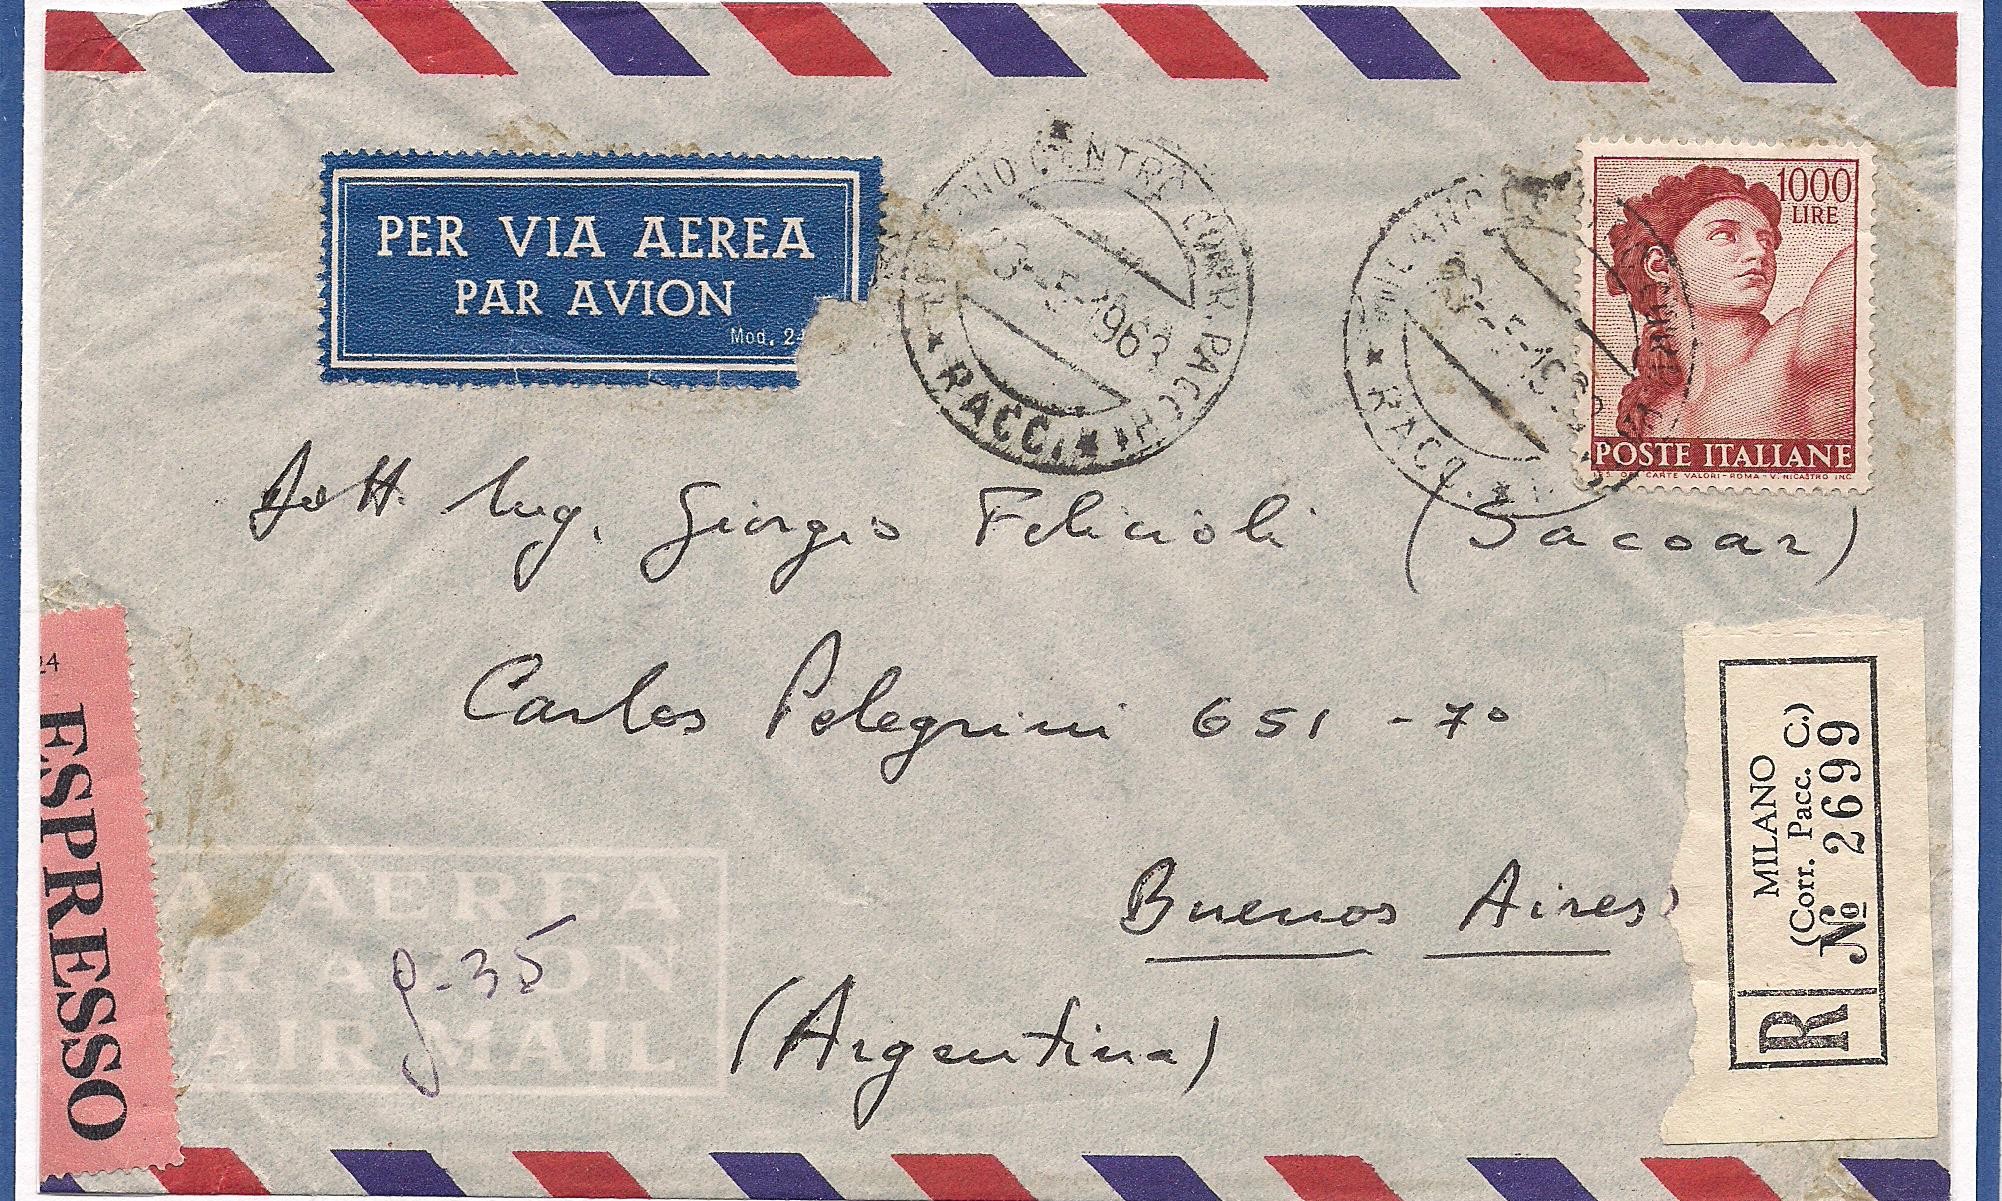 PER VIA AEREA
PAR AVION
Mod. 24
MILANO CENTRO CORR. PACCHI
23-5-1963
RACC.
MILANO
RACC.
1000
LIRE
POSTE ITALIANE
CARTE VALORI - ROMA - V. NICASTRO INC.
Dott Ing. Giorgio Felicioli (Sacoar)
Carlos Pelegrini 651 - 7º
Buenos Aires
(Argentina)
24
ESPRESSO
A AEREA
R AVION
AIR MAIL
g. 35
MILANO
(Corr. Pacc. C.)
R № 2699